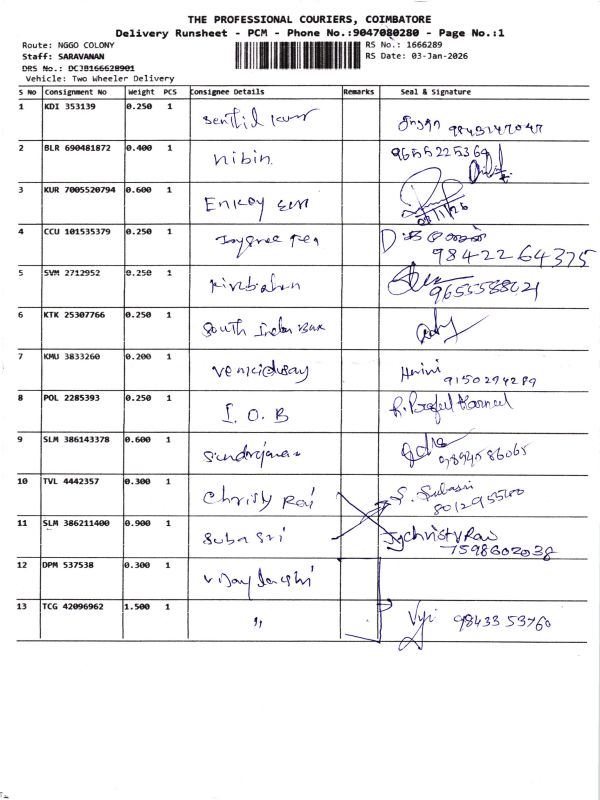 THE PROFESSIONAL COURIERS, COIMBATORE
Delivery Runsheet - PCM - Phone No.:9047080280 - Page No.:1
Route: NGGO COLONY
RS No.: 1666289
Staff: SARAVANAN
RS Date: 03-Jan-2026
DRS No.: DCJB166628901
Vehicle: Two Wheeler Delivery
S No Consignment No Weight PCS Consignee Details Remarks Seal & Signature
1 KDI 353139 0.250 1 Senthil
2 BLR 690481872 0.400 1 nibin 9655225369
3 KUR 7005520794 0.600 1
4 CCU 101535379 0.250 1 9842264375
5 SVM 2712952 0.250 1 9655588021
6 KTK 25307766 0.250 1 South
7 KMU 3833260 0.200 1 Harini
9150294289
8 POL 2285393 0.250 1 I.O.B
9 SLM 386143378 0.600 1 9894586065
10 TVL 4442357 0.300 1 Christy Raj S. Subasri
8012955500
11 SLM 386211400 0.900 1 Suba Sri Christy Raj
7598602038
12 DPM 537538 0.300 1
13 TCG 42096962 1.500 1 " Vyi 9843353760